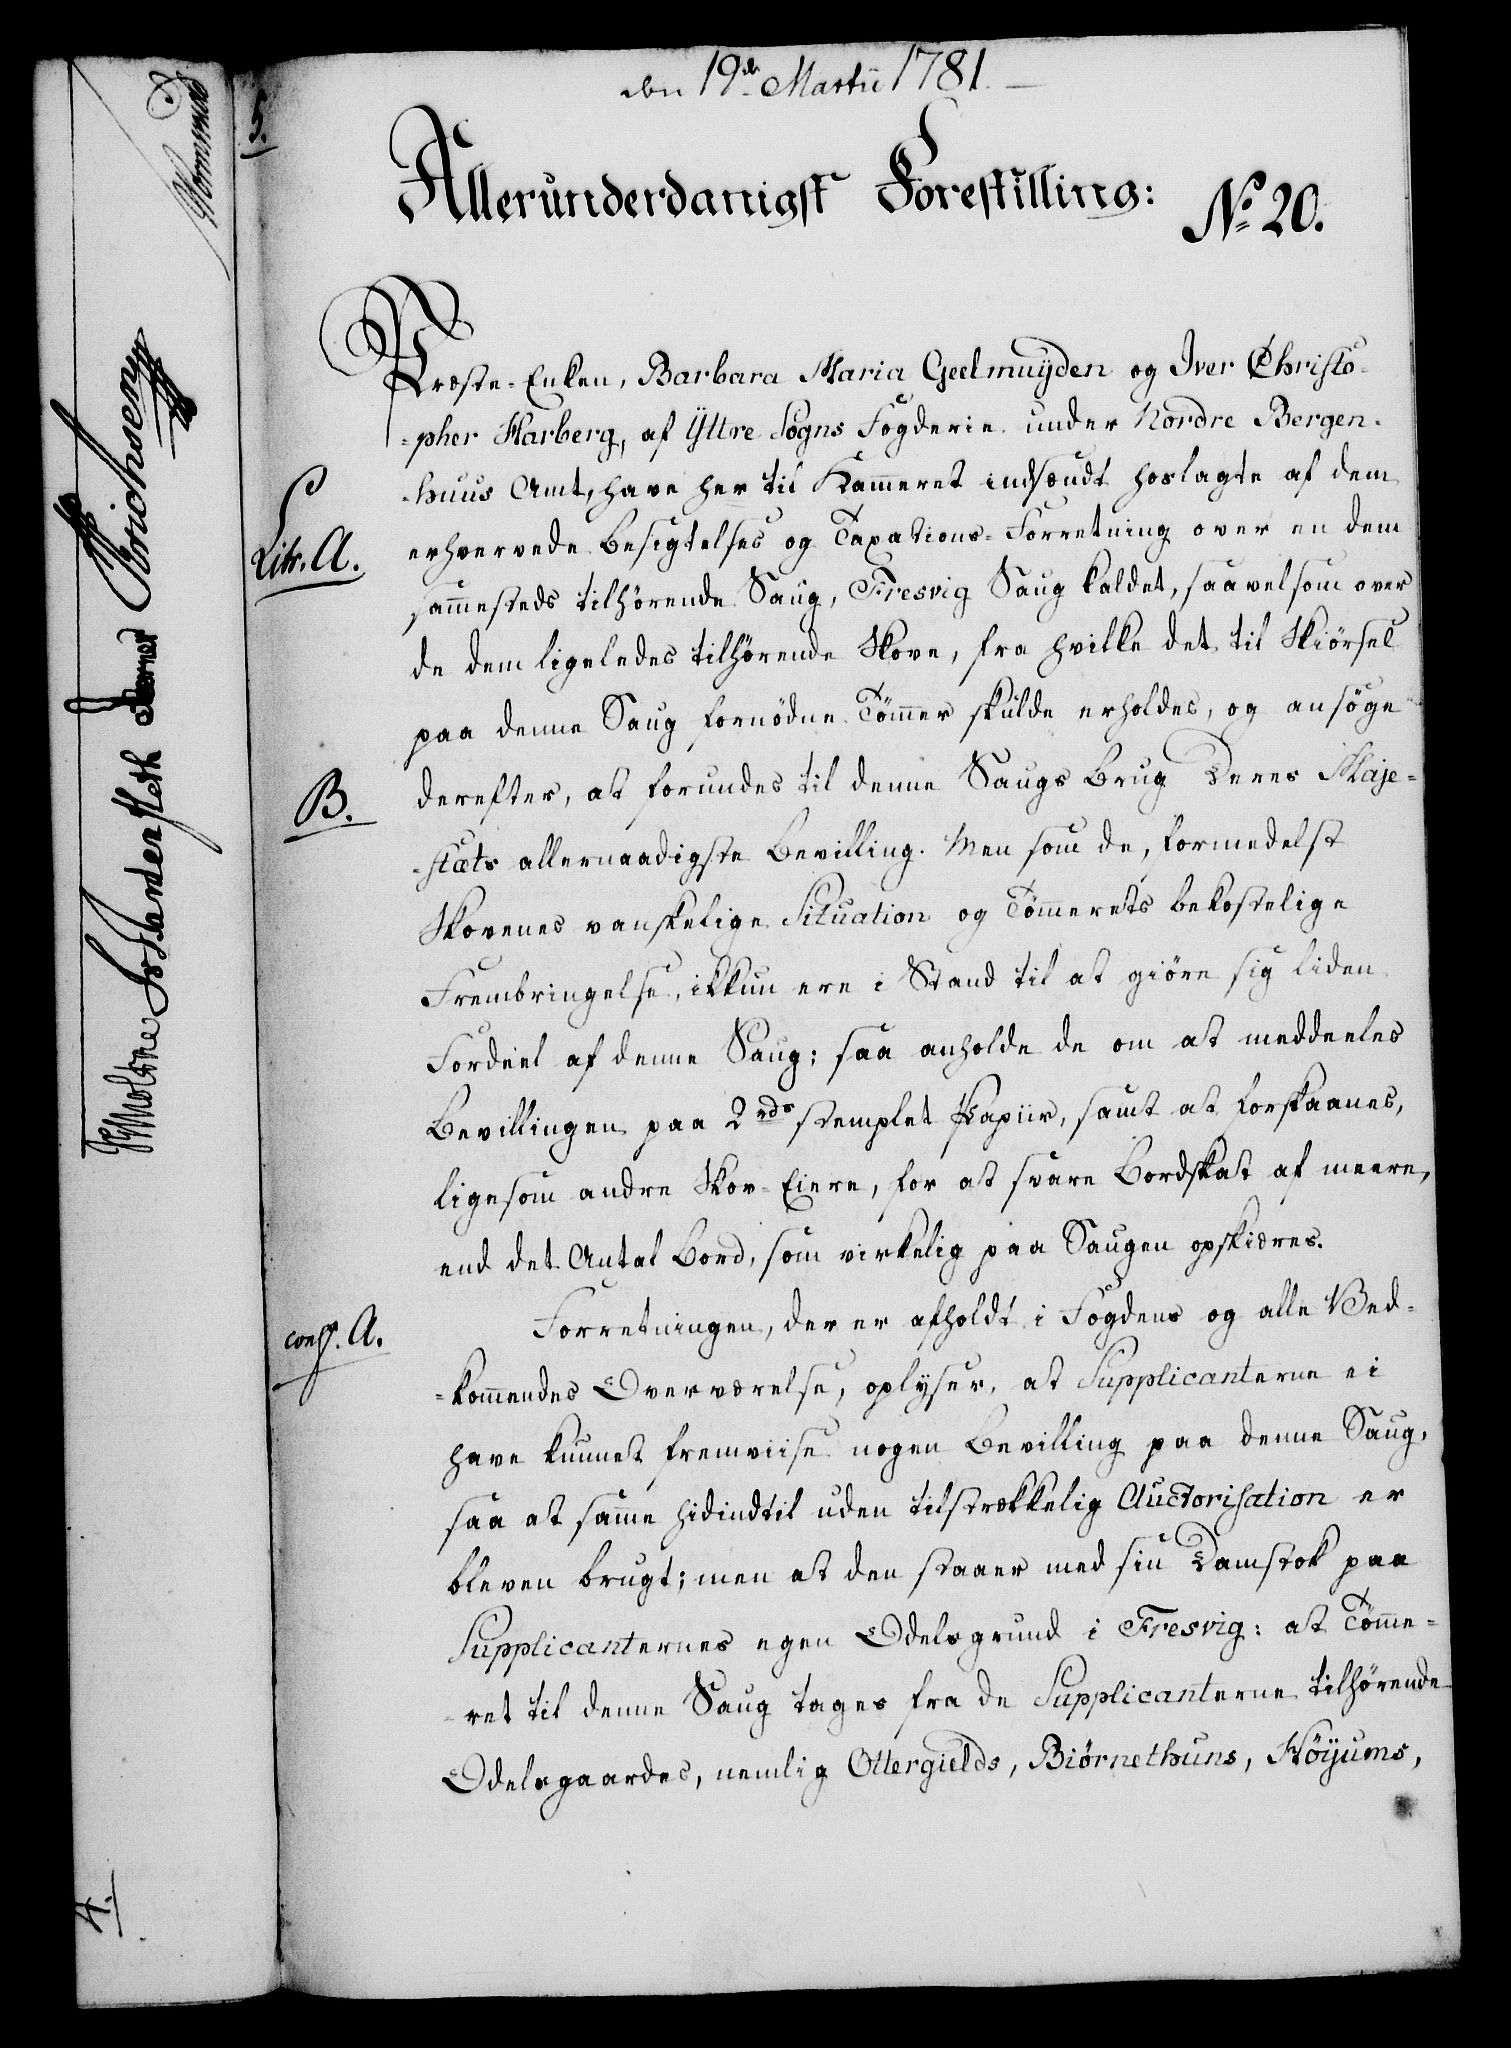 den 19de Martii 1781.
5.
Allerunderdanigst Forestilling:
No 20.
Præste-Enken, Barbara Maria Geelmuÿden og Iver Christo-
-pher Harberg, af Ÿttre Sogns Fogderie under Nordre Bergen-
-huus Amt, have her til Kam̄eret indsendt hoslagte af dem
Litr. A.
erhvervede Besigtelses og Taxations-Forretning over en dem
sam̄esteds tilhörende Saug, Fresvig Saug kaldet, saavelsom over
de dem ligeledes tilhörende Skove, fra hvilke det til Skiörsel
paa denne Saug fornödne Töm̄er skulde erholdes, og ansöge
B.
derefter, at forundes til denne Saugs Brug Deres Maje-
-stæts allernaadigste Bevilling. Men som de, formedelst
Skovenes vanskelige Situation og Töm̄erets bekostelige
Frembringelse, ikkun ere i Stand til at giöre sig liden
Fordeel af denne Saug; saa anholde de om at meddeeles
Bevillingen paa 2 rds stemplet Papiir, samt at forskaanes,
ligesom andre Skov-Eiere, for at svare Bordskat af meere,
end det Antal Bord, som virkelig paa Saugen opskiæres.
conf. A.
Forretningen, der er afholdt i Fogdens og alle Ved-
-kom̄endes Overværelse, oplyser, at Supplicanterne ei
have kunnet fremviise nogen Bevilling paa denne Saug,
saa at sam̄e hidindtil uden tilstrækkelig Auctorisation er
bleven brugt; men at den staaer med sin Damstok paa
Supplicanternes egen Odelsgrund i Fresvig: at Töm̄e-
-ret til denne Saug tages fra de Supplicanterne tilhörende
Odelsgaardes, nemlig Ottergields, Biörnethuns, Höÿums,
4.